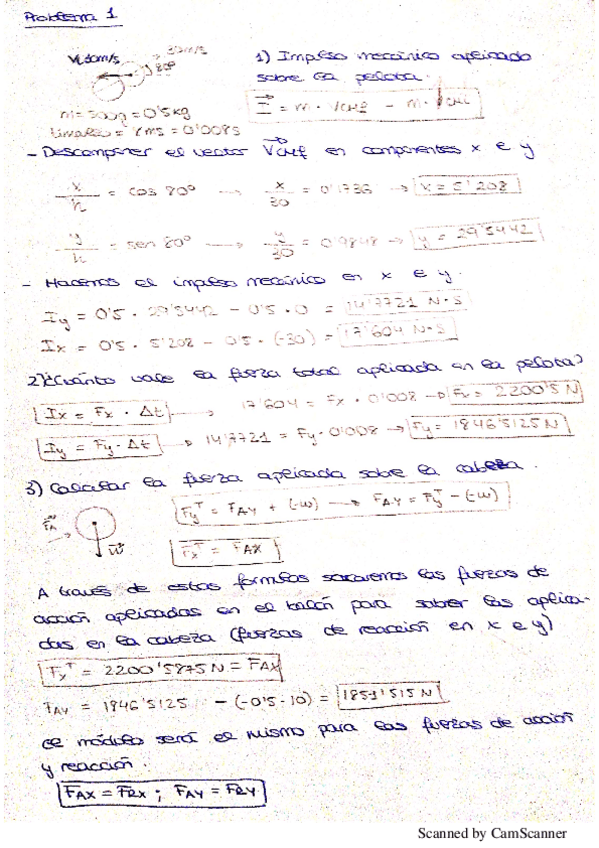 Problema 1
30m/s
80º
m = 500g = 0'5 kg
= 8ms = 0'008s
1) Impulso mecánico aplicado
sobre la pelota.
I = m · VCMf - m · VCMi
- Descomponer el vector VCMf en componentes x e y
x/h = cos 80º → x/30 = 0'1736 → x = 5'208
y/h = sen 80º → y/30 = 0'9848 → y = 29'5442
- Hacemos el impulso mecánico en x e y.
Iy = 0'5 · 29'5442 - 0'5 · 0 = 14'7721 N·s
Ix = 0'5 · 5'208 - 0'5 · (-30) = 17'604 N·s
2) ¿Cuánto vale la fuerza total aplicada en la pelota?
Ix = Fx · Δt → 17'604 = Fx · 0'008 → Fx = 2200'5 N
Iy = Fy · Δt → 14'7721 = Fy · 0'008 → Fy = 1846'5125 N
3) Calcular la fuerza aplicada sobre la cabeza.
FA
W
FyT = FAy + (-w) → FAy = FyT - (-w)
FxT = FAx
A través de estas formulas sacaremos las fuerzas de
acción aplicadas en el balón para saber las aplica-
das en la cabeza (fuerzas de reacción en x e y)
FxT = 2200'5875 N = FAx
FAy = 1846'5125 - (-0'5·10) = 1851'515 N
el módulo será el mismo para las fuerzas de acción
y reacción.
FAx = FRx ; FAy = FRy
Scanned by CamScanner